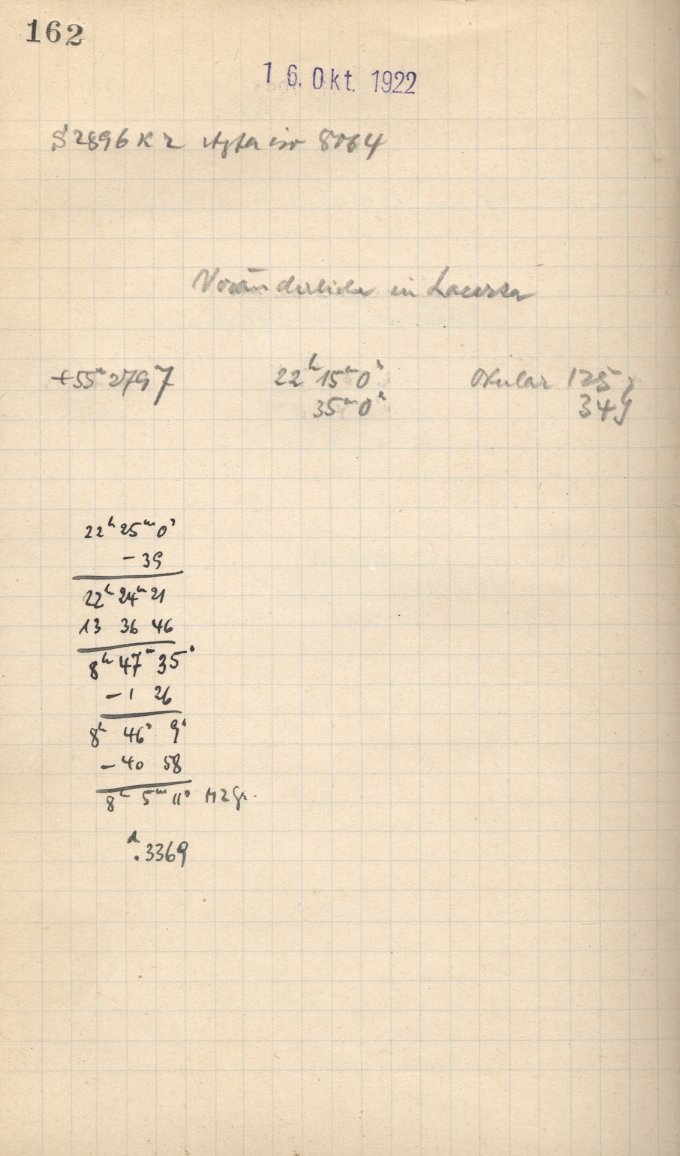 162
16. Okt. 1922
S 2896 K 2 8064
Veränderliche in Lacerta
+55° 2797 22ʰ 15ᵐ 0ˢ Okular 125
35ᵐ 0ˢ 349
22ʰ 25ᵐ 0ˢ
- 39
22ʰ 24ᵐ 21
13 36 46
8ʰ 47ᵐ 35ˢ
- 1 26
8ʰ 46ᵐ 9ˢ
- 40 58
8ʰ 5ᵐ 11ˢ MZGr.
ᵈ.3369